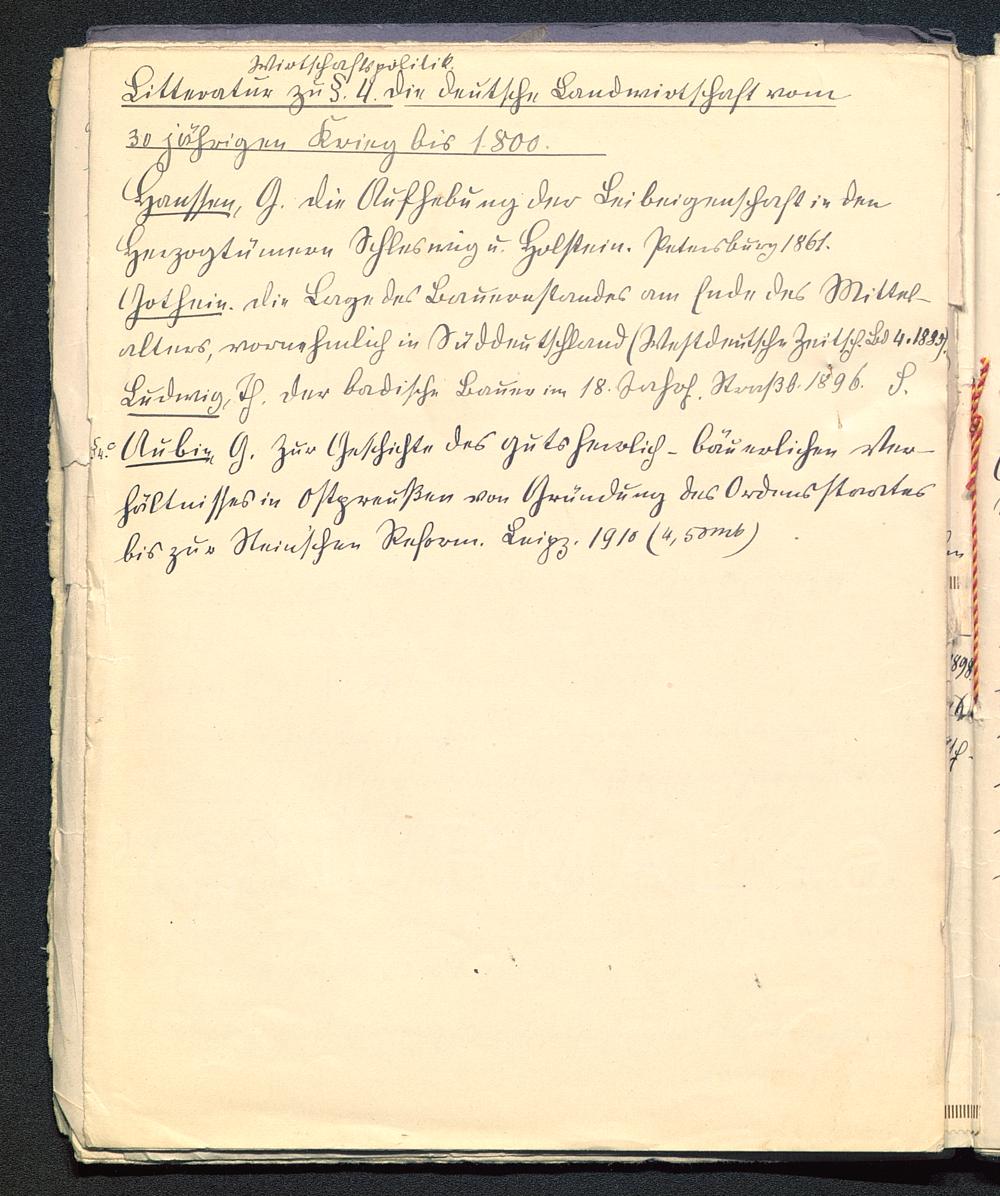 Wirtschaftspolitik.
Litteratur zu §. 4. Die deutsche Landwirtschaft vom
30 jährigen Krieg bis 1800.
Hanssen, G. die Aufhebung der Leibeigenschaft in den
Herzogtümern Schleswig u. Holstein. Petersburg 1861.
Gothein. die Lage des Bauernstandes am Ende des Mittel-
alters, vornehmlich in Süddeutschland (Westdeutsche Zeitsch. Bd 4. 1885).
Ludwig, Th. der badische Bauer im 18. Jahrh. Straßb. 1896.
Aubin G. Zur Geschichte des gutsherrlich-bäuerlichen Ver-
hältnisses in Ostpreußen von Gründung des Ordensstaates
bis zur Stein'schen Reform. Leipz. 1910 (4,50 mk)
1898